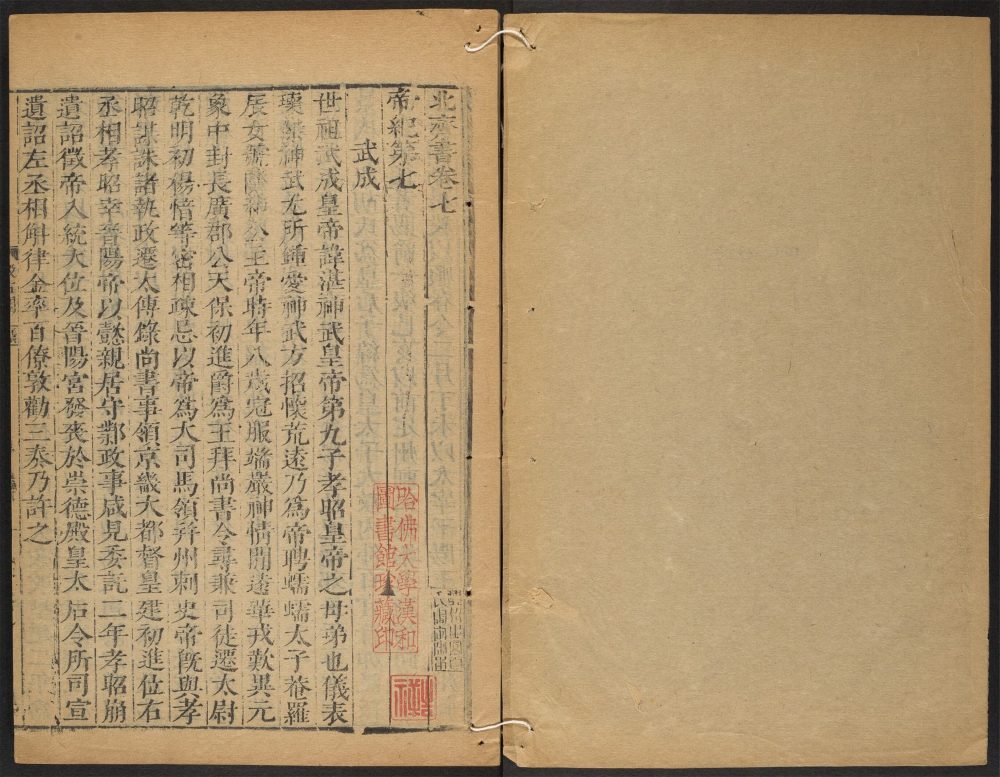 北齊書卷七
帝紀第七
武成
世祖武成皇帝諱湛神武皇帝第九子孝昭皇帝之母弟也儀表
瓌傑神武尤所鍾愛神武方招懷荒遠乃爲帝聘蠕蠕太子菴羅
辰女號隣和公主帝時年八歲冠服端嚴神情閒遠華戎歎異元
象中封長廣郡公天保初進爵爲王拜尚書令尋兼司徒遷太尉
乾明初楊愔等密相疎忌以帝爲大司馬領并州刺史帝旣與孝
昭謀誅諸執政遷太傅錄尚書事領京畿大都督皇建初進位右
丞相孝昭幸晉陽帝以懿親居守鄴政事咸見委託二年孝昭崩
遺詔徵帝入統大位及晉陽宮發喪於崇德殿皇太后令所司宣
遺詔左丞相斛律金率百僚敦勸三奏乃許之
哈佛大學漢和
圖書館珍藏印